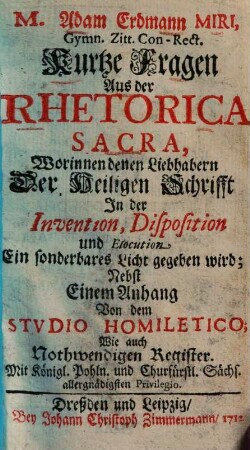 M. Adam Erdmann MIRI,
Gymn. Zitt. Con-Rect.
Kurtze Fragen
Aus der
RHETORICA
SACRA,
Worinnen denen Liebhabern
Der Heiligen Schrifft
In der
Invention, Disposition
und Elocution
Ein sonderbares Licht gegeben wird;
Nebst
Einem Anhang
Von dem
STVDIO HOMILETICO;
Wie auch
Nothwendigen Register.
Mit Königl. Pohln. und Churfürstl. Sächs.
allergnädigsten Privilegio.
Dreßden und Leipzig/
Bey Johann Christoph Zimmermann/